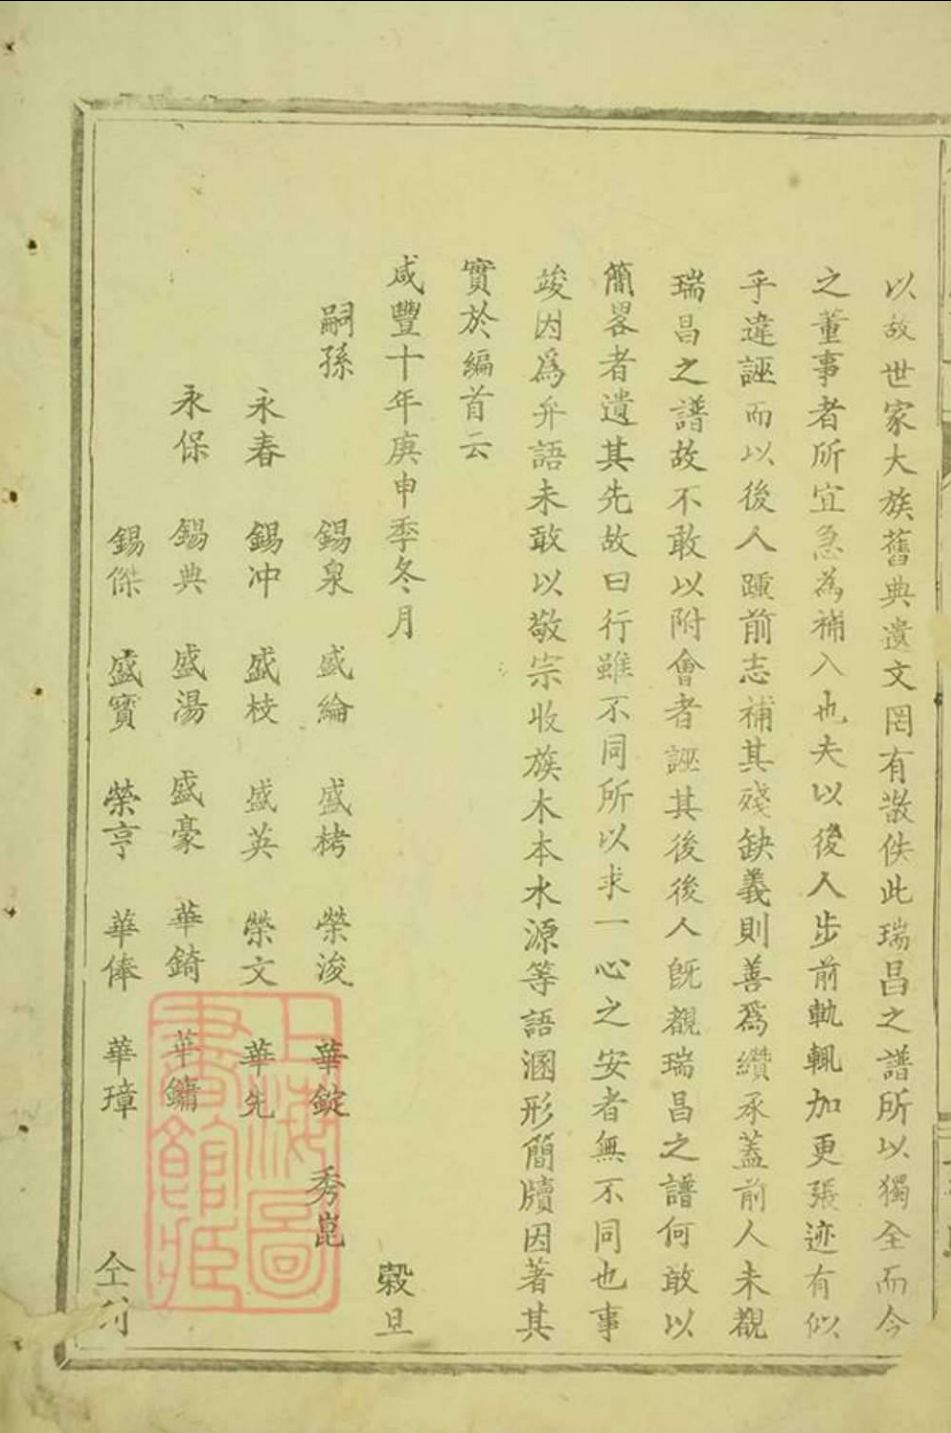 以故世家大族舊典遺文罔有散佚此瑞昌之譜所以獨全而今
之董事者所宜急為補入也夫以後人步前軌輒加更張迹有似
乎違誣而以後人踵前志補其殘缺義則善爲纘承蓋前人未觀
瑞昌之譜故不敢以附會者誣其後後人既觀瑞昌之譜何敢以
簡畧者遺其先故曰行雖不同所以求一心之安者無不同也事
竣因爲弁語未敢以敬宗收族木本水源等語溷形簡牘因著其
實於編首云
咸豐十年庚申季冬月 榖旦
嗣孫 錫泉 盛綸 盛栲 榮浚 華錠 秀崑
永春 錫冲 盛枝 盛英 榮文 華先
永保 錫典 盛湯 盛豪 華錡 華鏞
錫傑 盛寶 榮亨 華俸 華璋 仝
上海圖書館藏